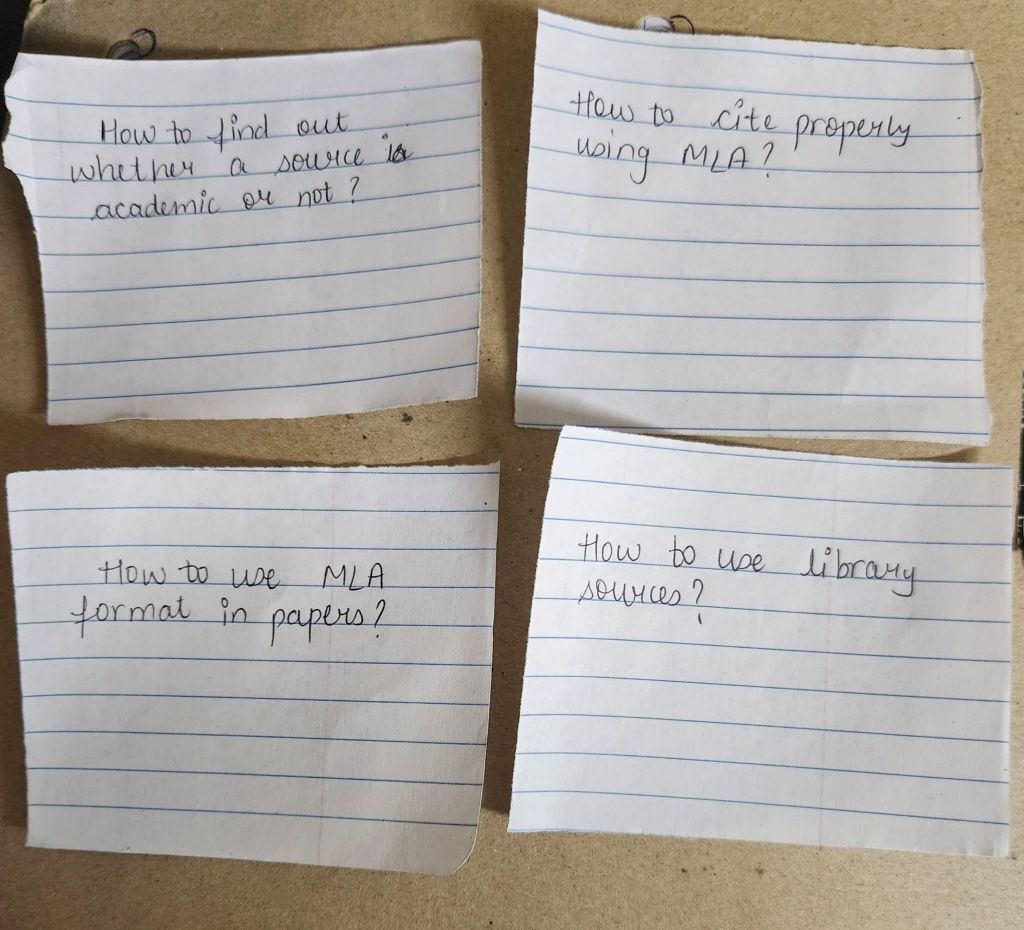 How to find out
whether a source is
academic or not?
How to cite properly
using MLA?
How to use MLA
format in papers?
How to use library
sources?